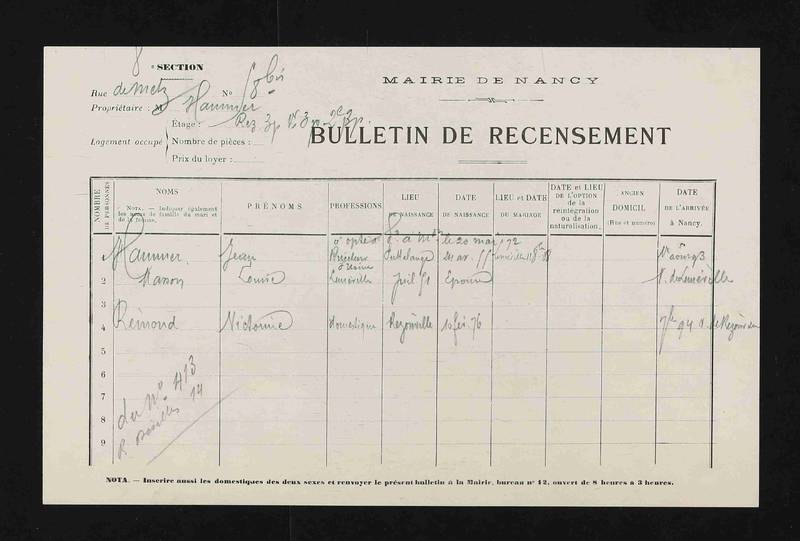 8e SECTION
MAIRIE DE NANCY
Rue de Metz No 58 bis
Propriétaire : M Hammer
Étage : Rez 3p 1er 3p 2e 3p.
Logement occupé
Nombre de pièces :
Prix du loyer :
BULLETIN DE RECENSEMENT
NOMBRE DE PERSONNES
NOMS
NOTA. — Indiquer également les noms de famille du mari et de la femme.
PRÉNOMS
PROFESSIONS
LIEU DE NAISSANCE
DATE DE NAISSANCE
LIEU et DATE DU MARIAGE
DATE et LIEU DE L'OPTION de la réintégration ou de la naturalisation.
ANCIEN DOMICIL (Rue et numéro)
DATE DE L'ARRIVÉE à Nancy.
a opté à le 20 mai 72
Hammer Jean Puttelange
2 Masson Louise Lenoncourt Juil 51 Epouse
3
4 Rémond Victorine domestique Rezonville 10 fév. 76 94
5
6
7
8
9
du No 413
R. 14
NOTA. — Inscrire aussi les domestiques des deux sexes et renvoyer le présent bulletin à la Mairie, bureau no 12, ouvert de 8 heures à 3 heures.